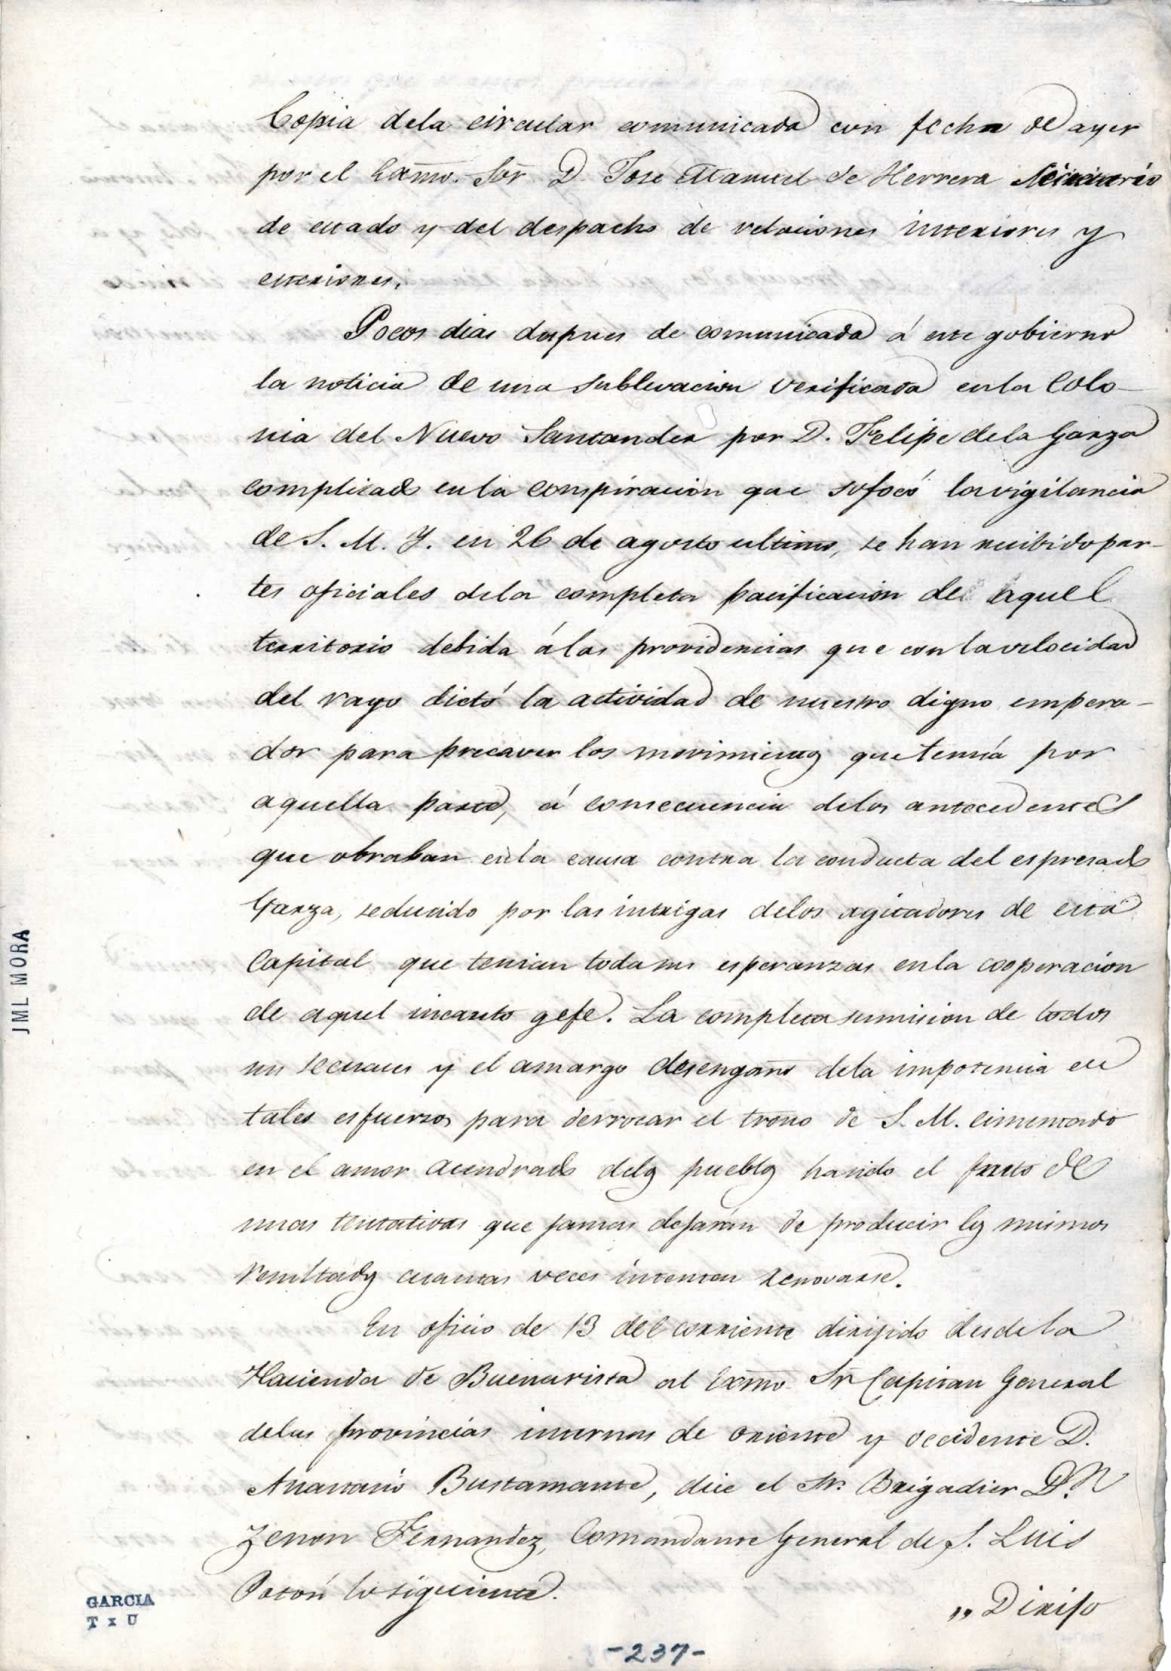 Copia dela circular comunicada con fecha de ayer
por el Exmo. Sõr D. Jose Manuel de Herrera Secretario
de estado y del despacho de relaciones interiores y
esteriores.
Pocos dias despues de comunicada á este gobierno
la noticia de una sublevacion verificada enla Colo-
nia del Nuevo Santander por D. Felipe dela Garza
complicado enla conspiracion que sofocó lavigilancia
de S. M. Y. en 26 de agosto ultimo, se han recibido par-
tes oficiales dela completa pacificacion de aquel
territorio debida álas providencias que con lavelocidad
del rayo dictó la actividad de nuestro digno empera-
dor para precaver los movimientos que temia por
aquella parte, á consecuencia delos antecedentes
que obraban enla causa contra la conducta del espresado
Garza, seducido por las intrigas delos agitadores de esta
Capital que tenian toda sus esperanzas enla cooperacion
de aquel incauto gefe. La completa sumision de todos
sus secuaces y el amargo desengaño dela impotencia en
tales esfuerzos para derrocar el trono de S. M. cimentado
en el amor acendrado delos pueblos hasido el fruto de
unas tentativas que jamas dejarán de producir los mismos
resultados cuantas veces intenten renovarse.
En oficio de 13 del corriente dirijido desde la
Hacienda de Buenavista al Exmo Sr Capitan General
delas provincias internas de oriente y occidente D.
Anastasio Bustamante, dice el Sr. Brigadier D.n
Zenon Fernandez, Comandante General de S. Luis
Potosí lo siguiente.
,, Dirijo
JML MORA
GARCIA
T x U
-237-